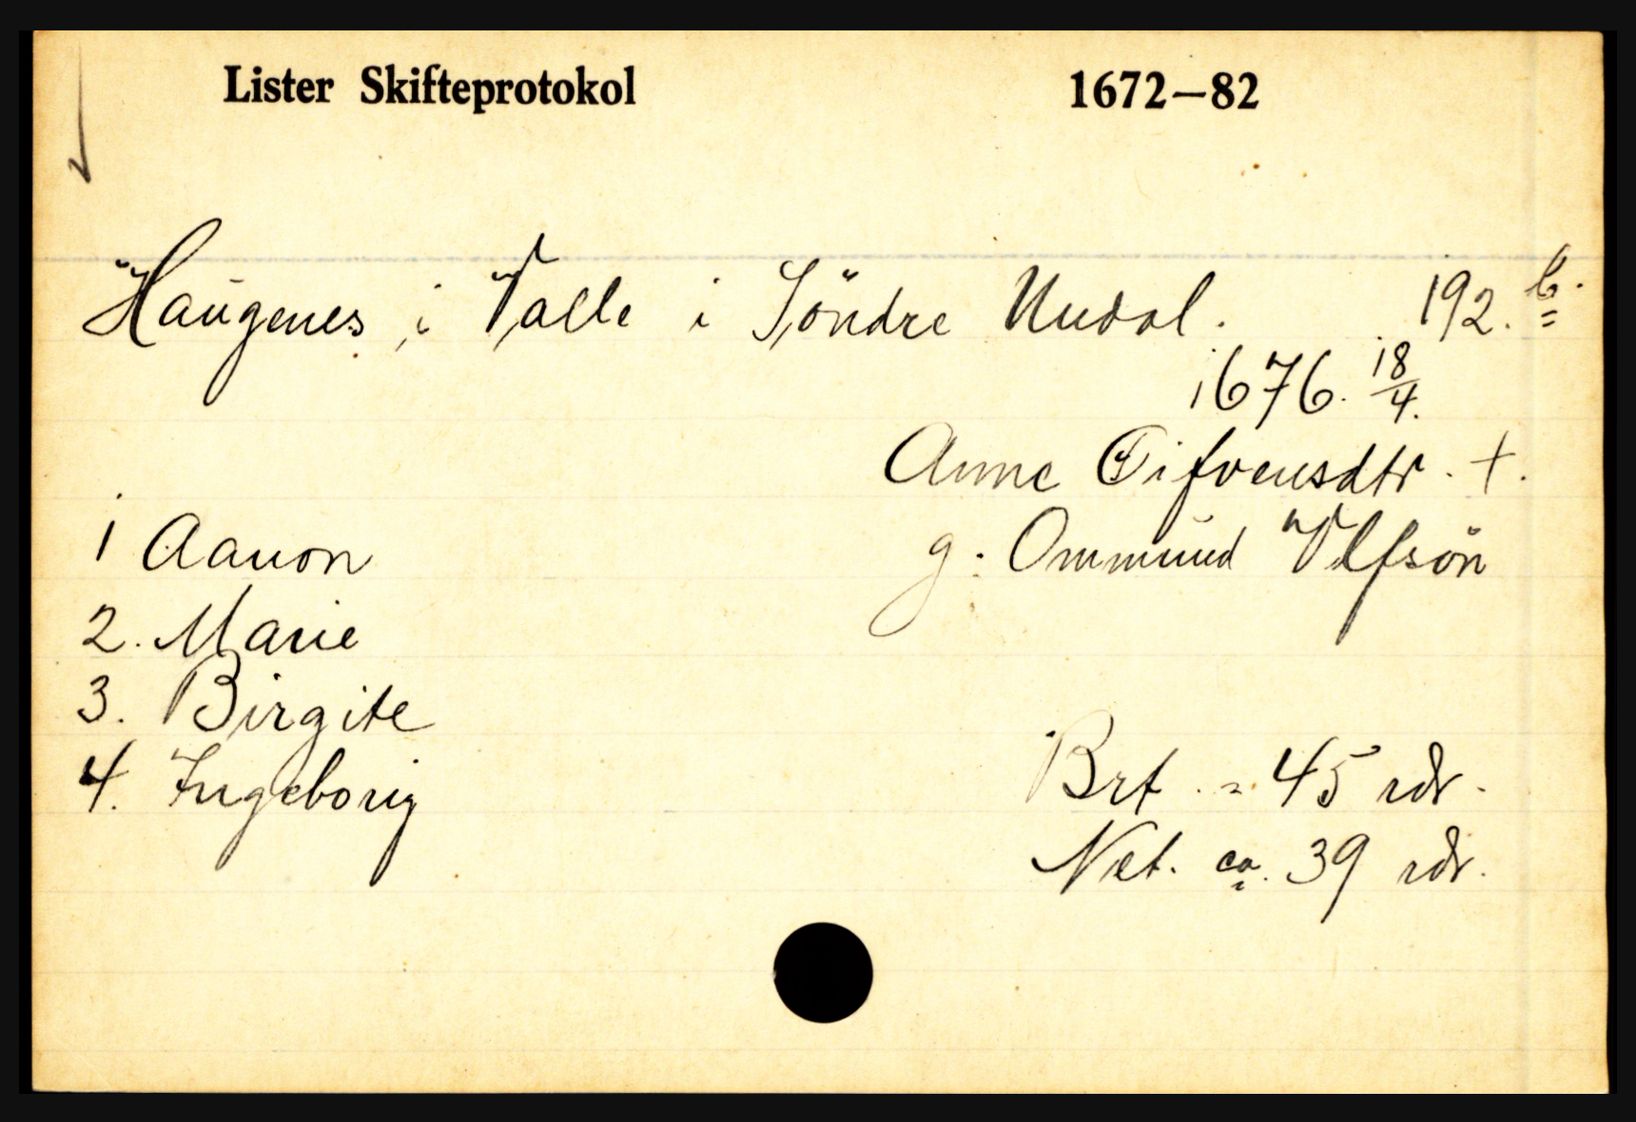 Lister Skifteprotokol 1672—82
Haugenes i Valle i Söndre Undal. 192.b.
1676. 18/4.
Anne Eifvensdtr. +.
1 Aanon g. Ommund Ulfsön
2. Marie
3. Birgite
4. Ingeborig Brt. = 45 rdr.
Net. ca. 39 rdr.